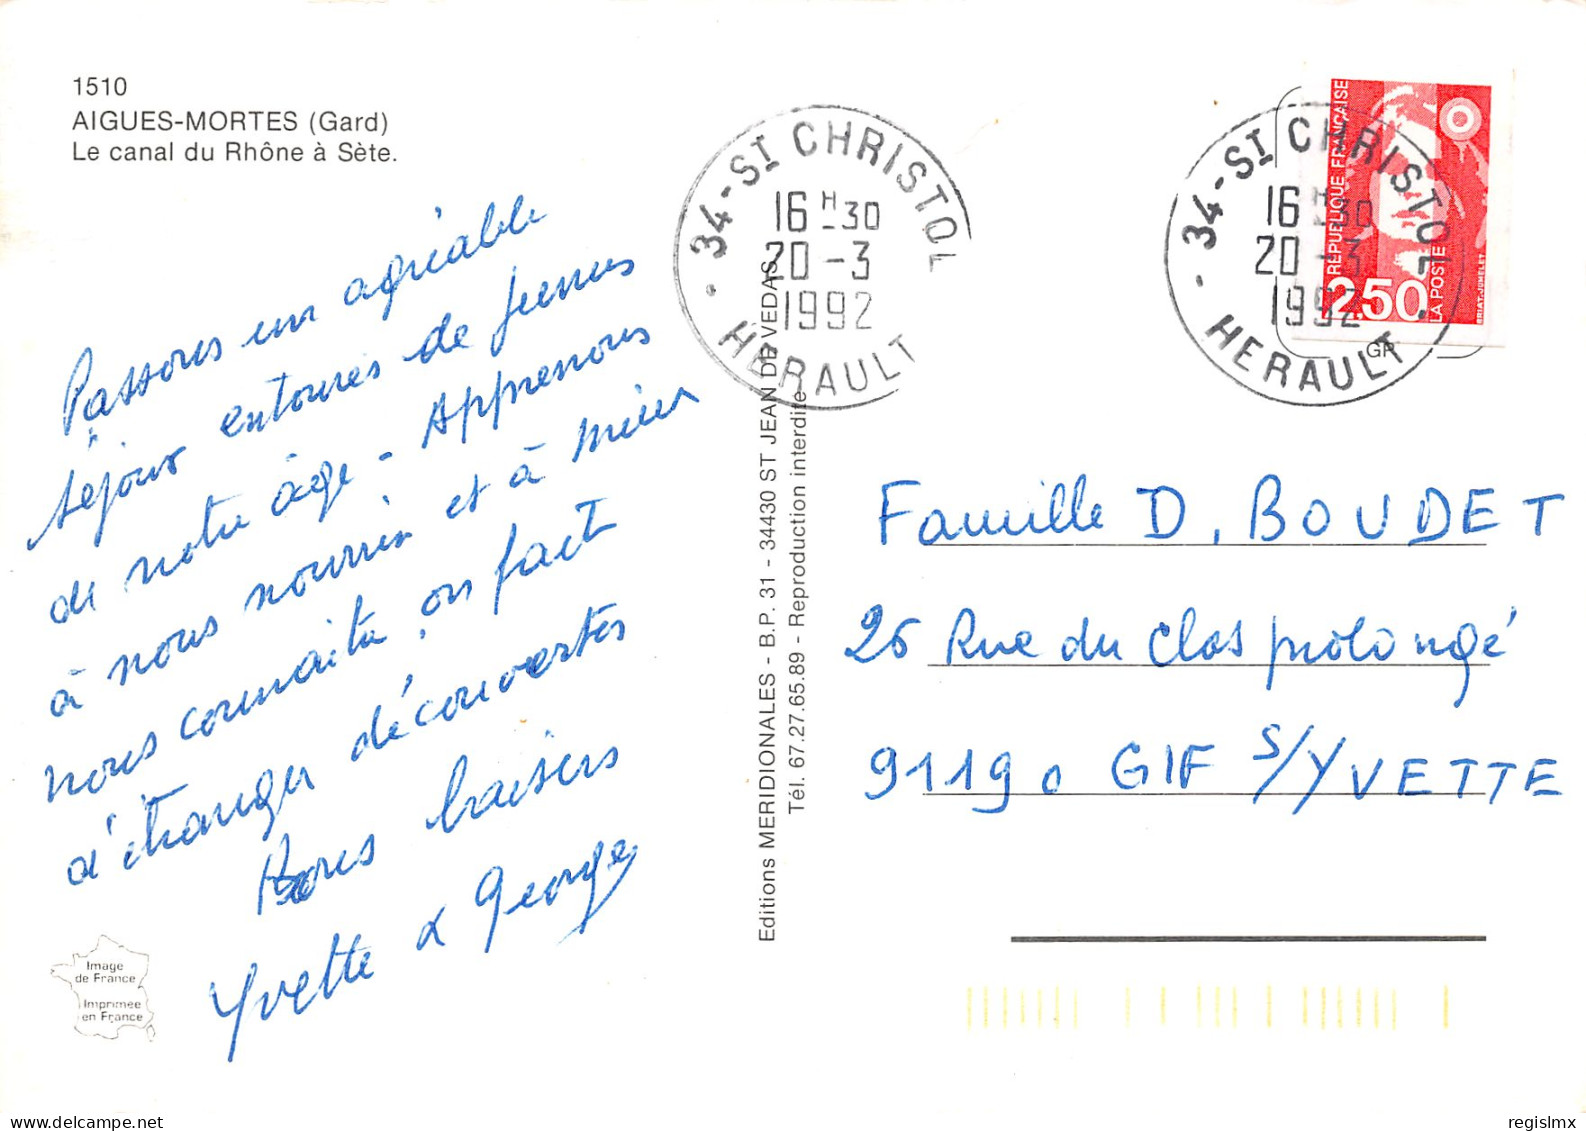 1510
AIGUES-MORTES (Gard)
Le canal du Rhône à Sète.
Passons un agréable
séjour entourés de jeunes
de notre âge - Apprenons
à nous nourrir et à mieux
nous connaître, on fait
d'étranges découvertes
Bons baisers
Yvette & George
Image
de France
Imprimée
en France
Editions MERIDIONALES - B.P. 31 - 34430 ST JEAN DE VEDAS
Tél. 67.27.65.89 - Reproduction interdite
34-ST CHRISTOL
16 H 30
20 -3
1992
HERAULT
34-ST CHRISTOL
16 H 30
20 -3
1992
HERAULT
REPUBLIQUE FRANÇAISE
2.50
LA POSTE
BRIAT-JUMELET
GP
Famille D. BOUDET
26 Rue du Clos prolongé
91190 GIF S/YVETTE
regislmx
delcampe.net